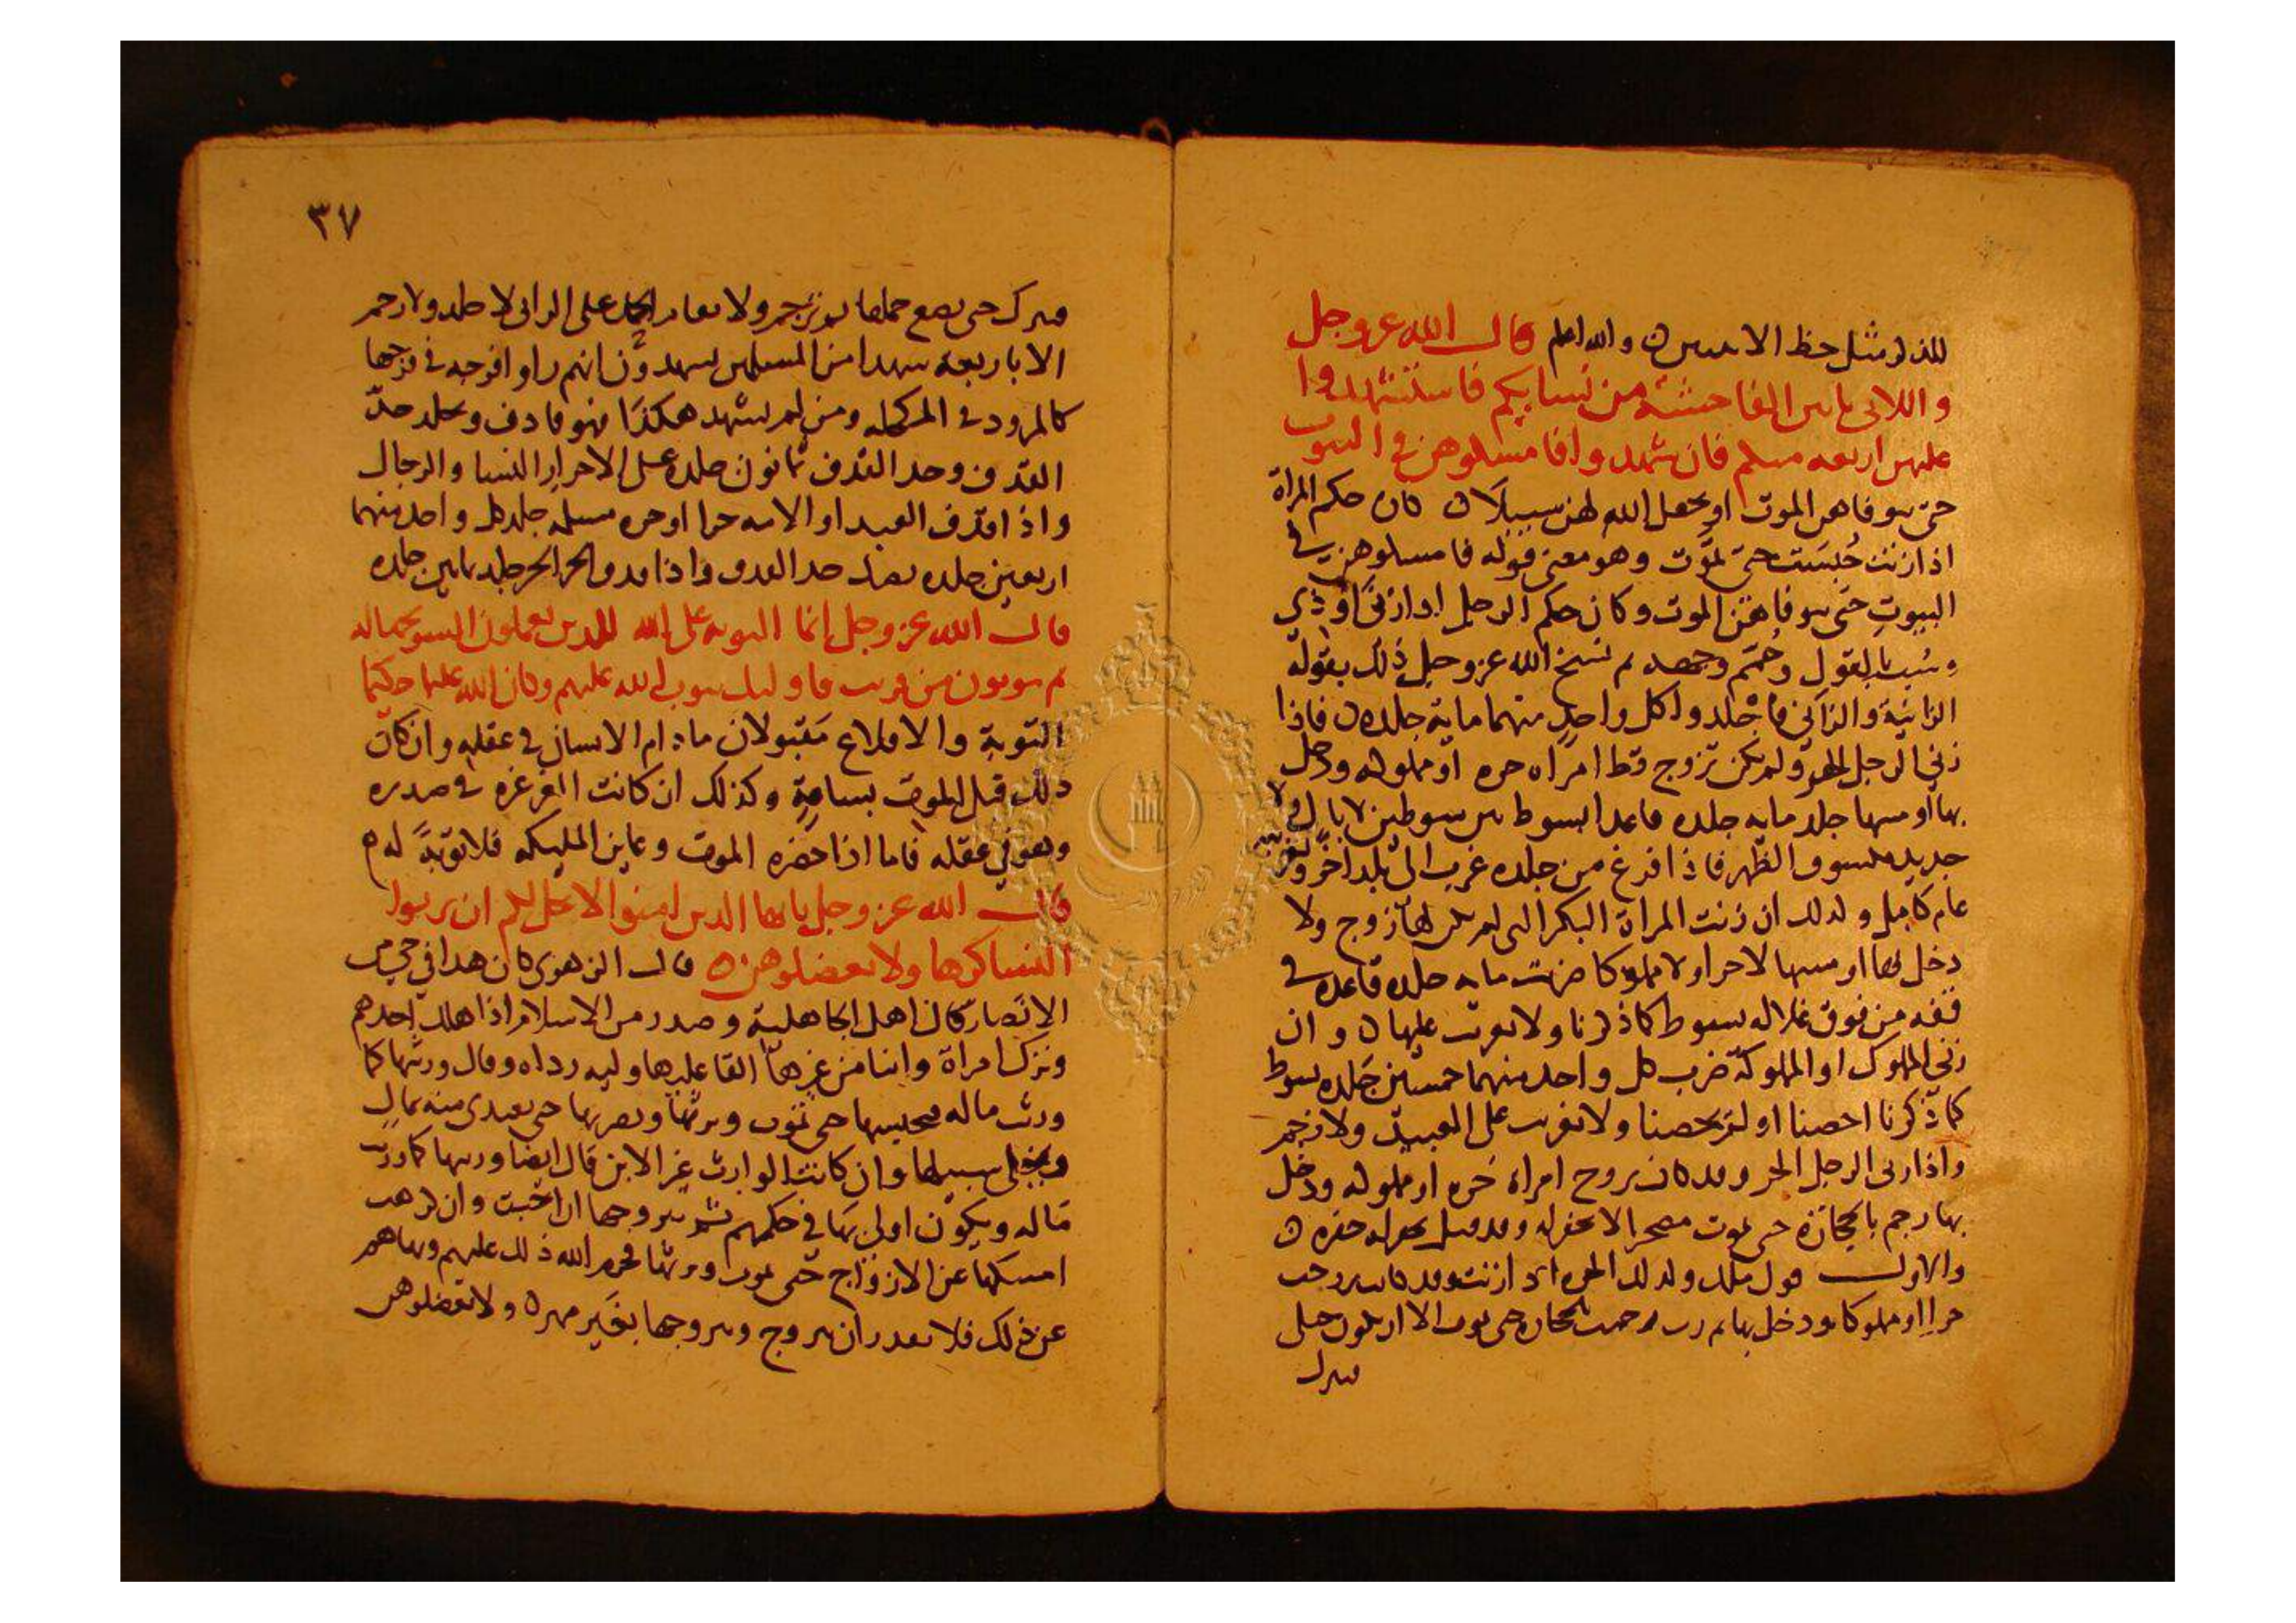 للذكر مثل حظ الانثيين ٥ والله اعلم قال الله عز وجل
واللاتى ياتين الفاحشة من نسايكم فاستشهدوا
عليهن اربعه منكم فان شهدوا فامسكوهن في البيوت
حتى يتوفاهن الموت او يجعل الله لهن سبيلا ٥ كان حكم المراة
اذا زنت حُبسَت حتى تموت وهو معنى قوله فامسكوهن في
البيوت حتى يتوفاهن الموت وكان حكم الرجل اذا زنى اوذي
وسُب بالقول ثم نسخ الله عز وجل ذلك بقوله
الزانية والزاني فاجلدوا كل واحدٍ منهما ماية جلده ٥ فاذا
زنى الرجل الحر ولم يكن تزوج قط امراه حره او مملوكه ودخل
بها او مسها جلد مايه جلده قاعدا بسوط بين سوطين لا بال ولا
جديد مكسوف الظهر فاذا فرغ من جلده غرب الى بلد اخر
عام كامل وكذلك ان زنت المراة البكر التى لم يكن لها زوج ولا
دخل بها او مسها لا حرا ولا مملوكا ضربت مايه جلده قاعده في
قفه من فوق غلاله بسوط كما ذكرنا ولا تغرب عليها ٥ وان
زنى المملوك او المملوكة ضرب كل واحد منهما خمسين جَلده بسوط
كما ذكرنا احصنا او لم يحصنا ولا تغريب على العبيد ولا رجم
واذا زنى الرجل الحر وقد كان تزوج امراة حره او مملوكه ودخل
بها رجم بالحجارة حتى يموت الا يحفر له وقد قيل يحفر له حفره ٥
والاول قول مالك وكذلك الحره اذا زنت وقد كانت تزوجت
حرا او مملوكا ودخل بها ثم زنت رجمت بالحجارة حتى تموت الا ان تكون حبلى
فتترك
٣٧
فتترك حتى تضع حملها ثم ترجم ولا يقام الحد على الزانى لا جلد ولا رجم
الا باربعة شهدا من المسلمين يشهدون انهم راوا فرجه في فرجها
كالمرود في المكحله ومن لم يشهد هكذا فهو قاذف ويجلد حدّ
القذف وحد القذف ثمانون جلده على الاحرار النسا والرجال
واذا قذف العبد او الامه حرا او حره مسلمه جلد كل واحد منهما
اربعين جلده نصف حد القذف واذا قذف الحر الحر جلد ثمانين جلده
قال الله عز وجل إنما التوبه على الله للذين يعملون السو بجهاله
ثم يتوبون من قريب فاوليك يتوب الله عليهم وكان الله عليما حكيما
التوبة والاقلاع مَقبولان مادام الانسان في عقله وان كان
ذلك قبل الموت بساعةٍ وكذلك ان كانت الغرغره في صدره
وهو في عقله فاما اذا حضره الموت وعاين المليكه فلا توبةً له ٥
قال الله عز وجل يايها الذين امنوا لا يحل لكم ان ترثوا
النسا كرها ولا تعضلوهن ٥ قال الزهرى كان هذا في حي من
الانصار كان اهل الجاهلية وصدر من الاسلام اذا هلك احدهم
وترك امراة وابنا من غيرها القا عليها وليه رداه وقال ورثتها كما
ورثت ماله فيحبسها حتى تموت ويرثها ويضربها حتى تفتدى منه بمال
ويخلى سبيلها وان كانت الوارث غير الابن قال ايضا ورثتها كما ورثت
ماله ويكون اولى بها في حكمهم ثم يتزوجها ان احبت وان كرهت
امسكها عن الازواج حتى تموت ويرثها فحرم الله ذلك عليهم ونهاهم
عن ذلك فلا تقدر ان تتزوج ويتزوجها بغير مهر ٥ ولا تعضلوهن